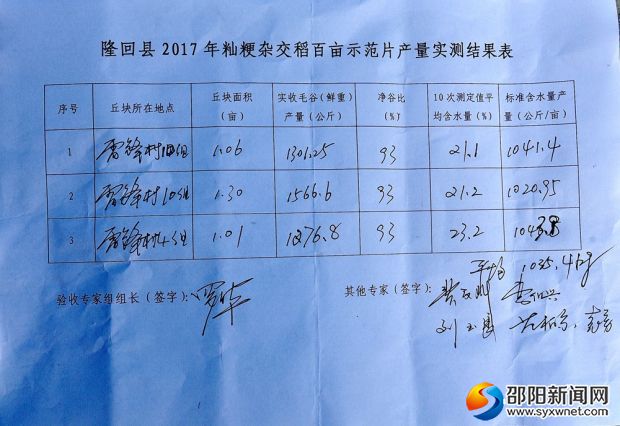 隆回县2017年籼粳杂交稻百亩示范片产量实测结果表
序号 丘块所在地点 丘块面积(亩) 实收毛谷(鲜重)产量(公斤) 净谷比(%) 10次测定值平均含水量(%) 标准含水量产量(公斤/亩)
1 雷锋村10组 1.06 1301.25 93 21.1 1041.4
2 雷锋村10组 1.30 1566.6 93 21.2 1020.95
3 雷锋村 组 1.01 1276.8 93 23.2
平均 1035.4kg
验收专家组组长(签字): 其他专家(签字):
邵阳新闻网
www.syxwnet.com